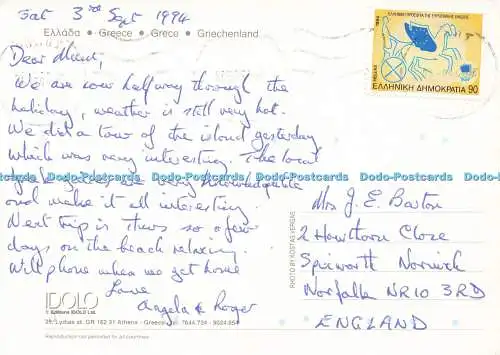 Sat 3rd Sept 1994
Ελλάδα • Greece • Grece • Griechenland
Dear Mient,
We are now halfway through the
holiday, weather is still very hot.
We did a tour of the island yesterday
which was very interesting. The local
guides are very knowledgable
and make it all interesting.
Next trip is Thurs so a few
days on the beach relaxing.
Will phone when we get home
Love
Angela & Roger
ΕΛΛΗΝΙΚΗ ΠΡΟΕΔΡΙΑ ΤΗΣ ΕΥΡΩΠΑΪΚΗΣ ΕΝΩΣΗΣ
1994
HELLAS
ΕΛΛΗΝΙΚΗ ΔΗΜΟΚΡΑΤΙΑ 90
Mrs J. E. Barton
2 Hawthorn Close
Spixworth Norwich
Norfolk NR10 3RD
ENGLAND
PHOTO BY KOSTAS VERGAS
IDOLO
© Editions IDOLO Ltd.
Reproduction not permitted for all countries
Dodo-Postcards Dodo-Postcards Dodo-Postcards Dodo-Postcards Dodo-Postcards